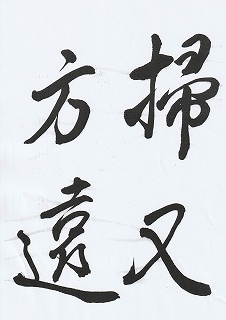 掃又
方遠